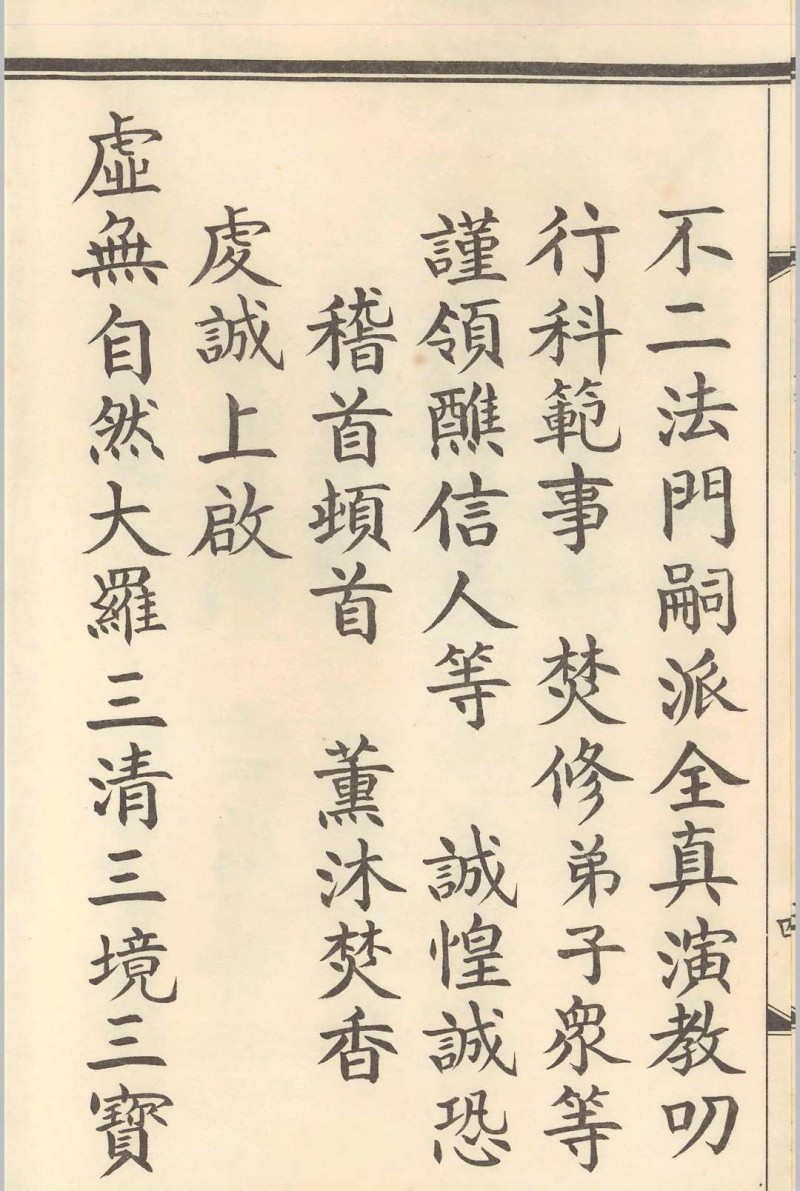 不二法門嗣派全真演教叨
行科範事　焚修弟子眾等
謹領醮信人等　誠惶誠恐
稽首頓首　薰沐焚香
虔誠上啟
虛無自然大羅三清三境三寶